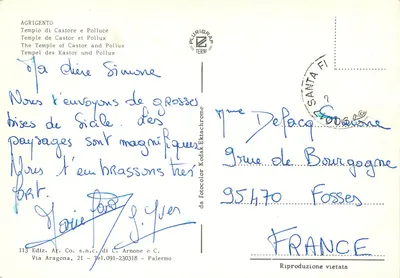 AGRIGENTO
Tempio di Castore e Polluce
Temple de Castor et Pollus
The Temple of Castor and Pollux
Tempel des Kastor und Pollux
Ma chère Simone
Nous t'envoyons de grosses
bises de Sicile. Les
paysages sont magnifiques
Nous t'embrassons très
fort.
Marie José J. Yves
113 Ediz. Ar. Co. s.n.c. di C. Arnone e C.
Via Aragona, 21 - Tel. 091-230318 - Palermo
PLURIGRAF
TERNI
da fotocolor Kodak Ektachrome
SANTA
Mme Defacq Simone
9 rue de Bourgogne
95470 Fosses
FRANCE
Riproduzione vietata